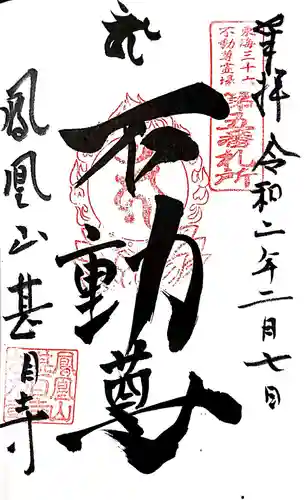 奉拝 令和二年二月七日
東海三十六
不動尊霊場
第五番札所
不動尊
鳳凰山 甚目寺
鳳凰山